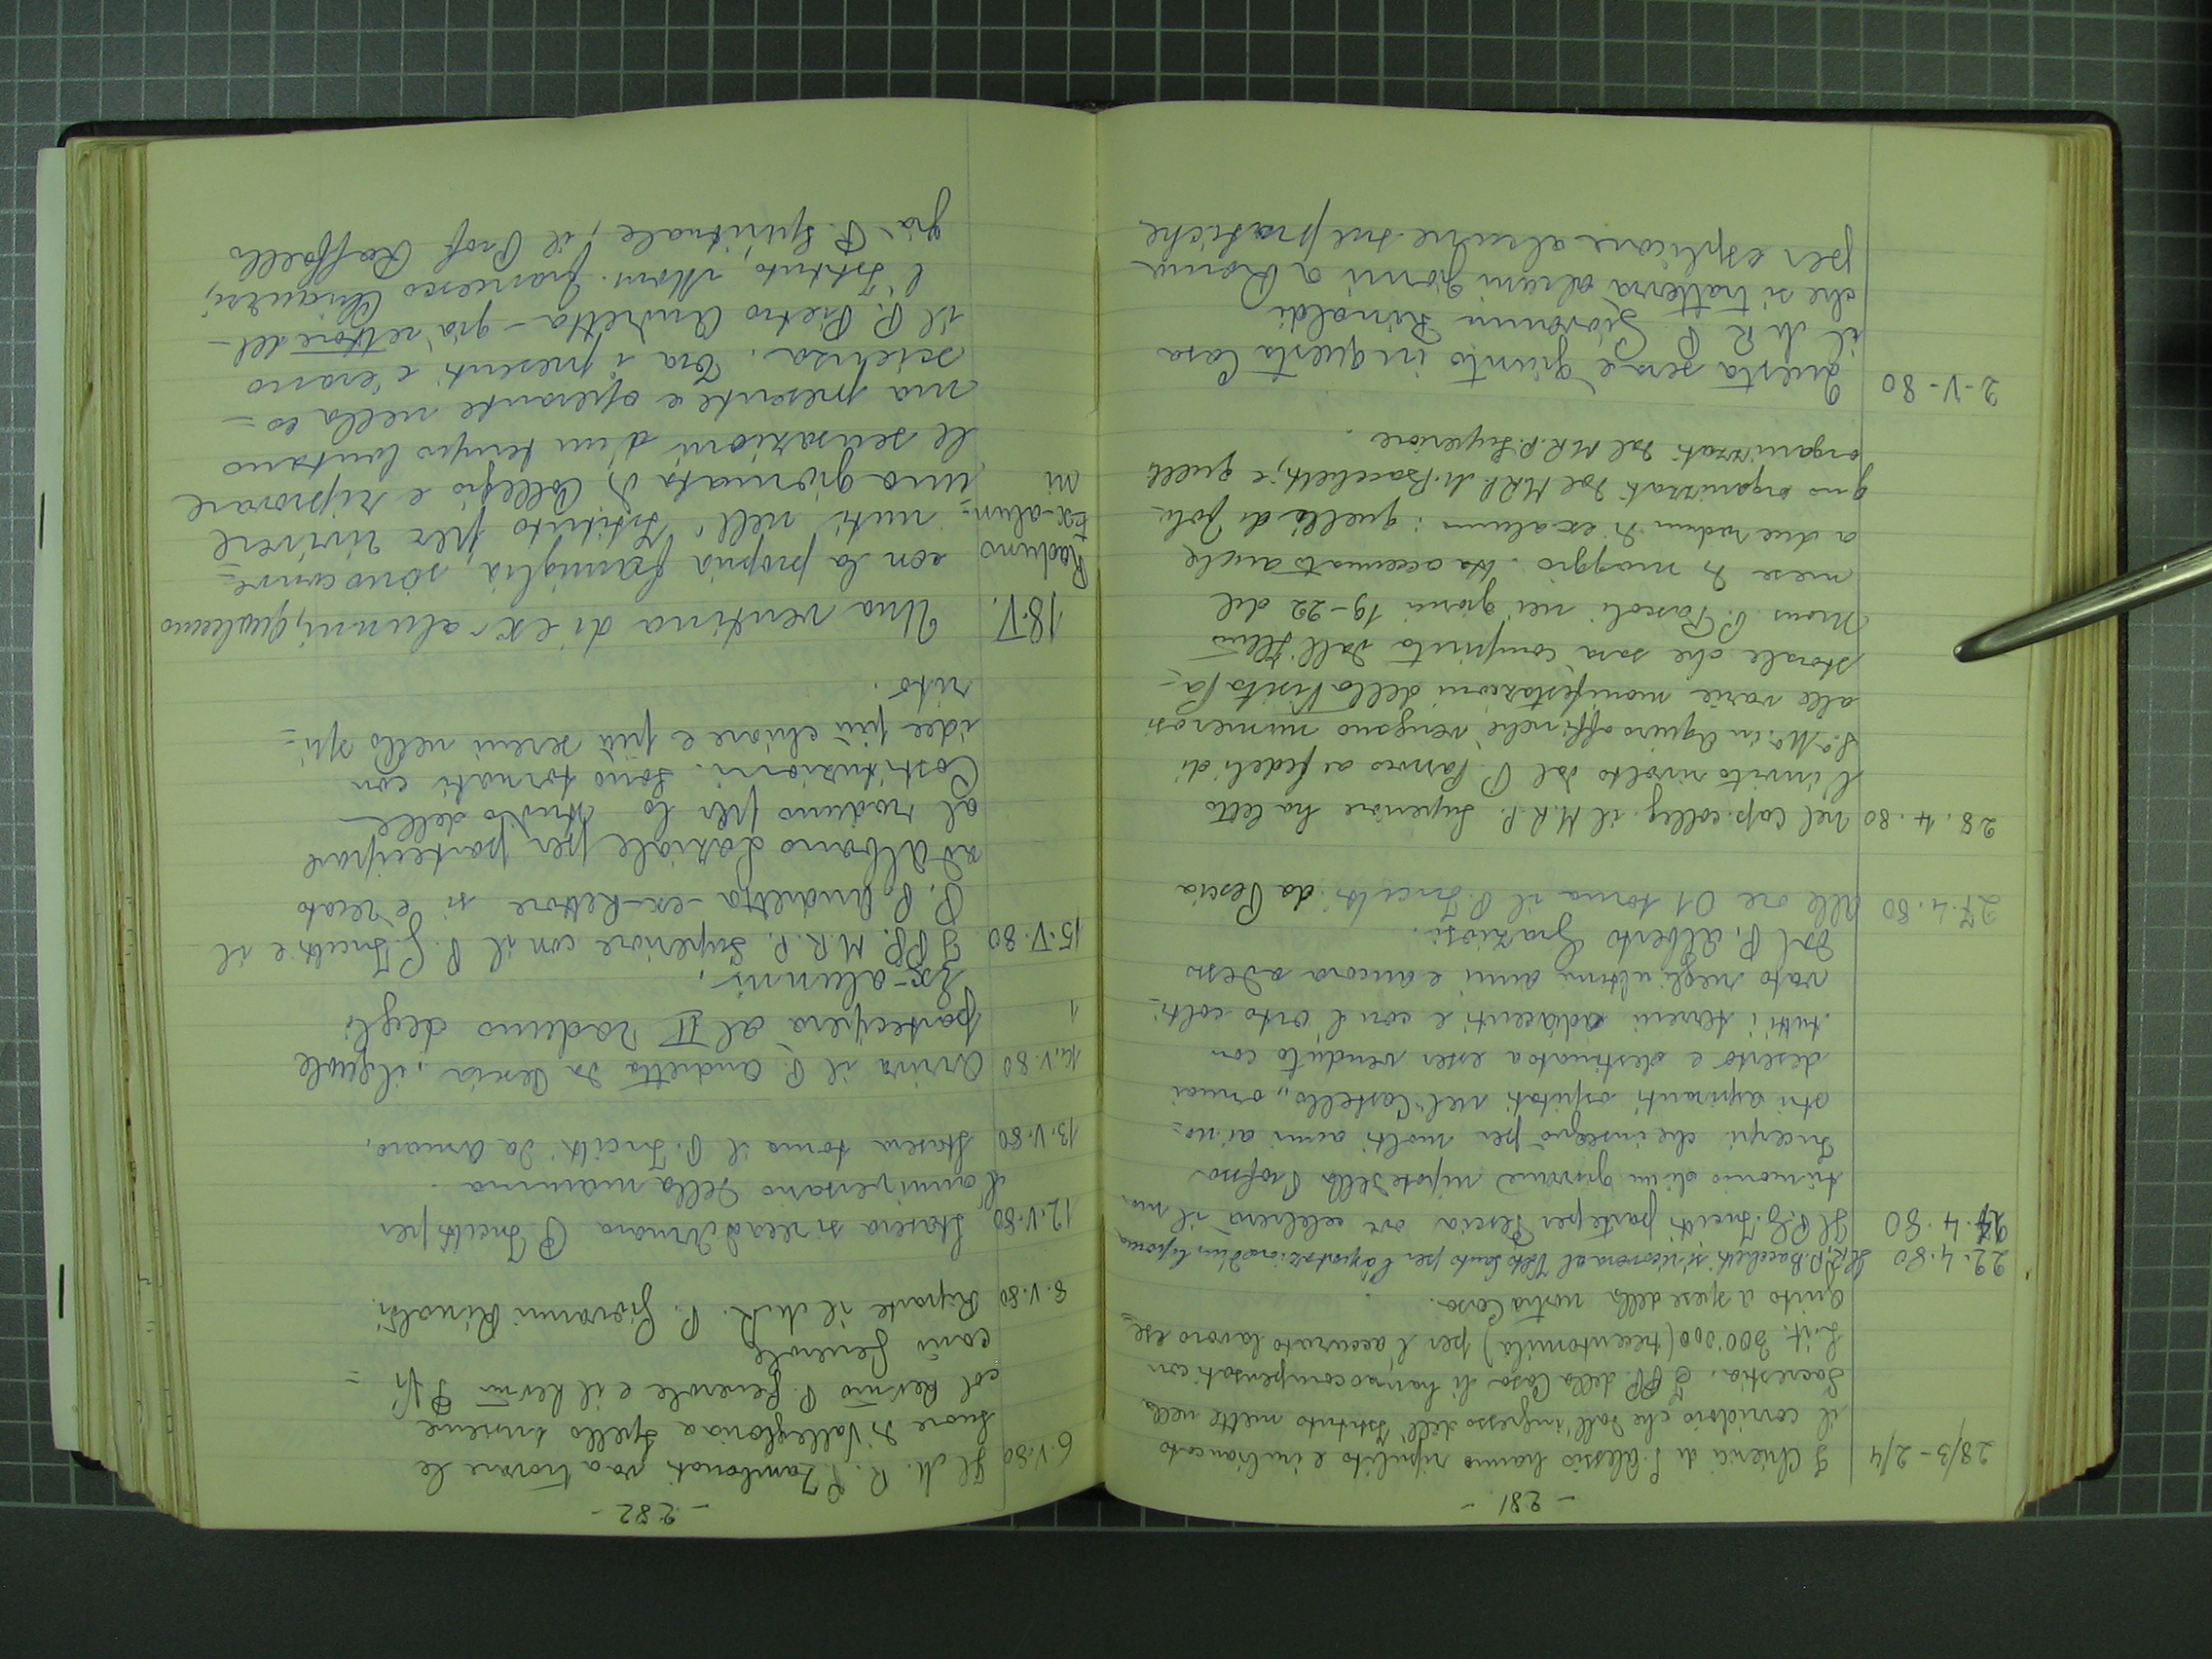 - 281 -
28/3-2/4 I Chierici di S. Alessio hanno ripulito e imbiancato
il corridoio che dall'ingresso dell'Istituto mette nella
Sacrestia. I PP. della Casa li hanno compensati con
L.it. 300.000 (trecentomila) per l'accurato lavoro ese-
guito a spese della nostra Casa.
22.4.80 Il R.P. Bacchetti si ricovera al Volto Santo per l'asportazione d'un lipoma
24.4.80 Il P. G. Inciti parte per Pescia ove celebrerà il ma-
trimonio di un giovane nipote della Prof.ssa
che insegnò per molti anni ai no-
stri aspiranti ospitati nel "Castello" ormai
deserto e destinato a esser venduto con
tutti i terreni adiacenti e con l'orto colti-
vato negli ultimi anni e ancora adesso
dal P. Alberto Graziosi.
27.4.80 Alle ore 01 torna il P. Inciti da Pescia
28.4.80 Nel Cap. colleg. il M.R.P. Superiore ha letto
l'invito rivolto dal P. Parroco ai fedeli di
S. Ma. in Aquiro affinché vengano numerosi
alle varie manifestazioni della Visita Pa-
storale che sarà compiuta dall'Ill.mo
Mons. P. Pascoli nei giorni 19-22 del
mese di maggio. Ha accennato anche
a due raduni di ex-alunni: quello di Foli-
gno organizzato dal M.R.P. M. Bacchetti, e quello
organizzato dal M.R.P. Superiore.
2-V-80 Questa sera è giunto in questa Casa
il M.R.P. Giovanni Rinaldi
che si tratterrà alcuni giorni a Roma
per esplicare alcune sue pratiche
- 282 -
6.V.80 Il M.R.P. Zambonati va a trovare le
Suore di Vallegloria a Spello insieme
col Rev.mo P. Generale e il Rev.mo P. Vi-
cario Generale
8.V.80 Riparte il M.R.P. Giovanni Rinaldi.
12.V.80 Stasera si reca ad Arnara P. Inciti per
l'anniversario della mamma.
13.V.80 Stasera torna il P. Inciti da Arnara.
14.V.80 Arriva il P. Andretta da Pescia, il quale
parteciperà al II raduno degli
Ex-alunni.
15.V.80 I PP. M.R.P. Superiore con il P. G. Inciti e il
P. P. Andretta - ex-Rettore si è recato
ad Albano Laziale per partecipare
al raduno per lo studio delle
Costituzioni. Sono tornati con
idee più chiare e più sereni nello spi-
rito.
18.V. Una ventina di ex-alunni, qualcuno
Raduno con la propria famiglia, sono conve-
Ex-alun- nuti nell'Istituto per rivivere
ni una giornata di Collegio e riprovare
le sensazioni d'un tempo lontano
ma presente e operante nella co-
scienza. Tra i presenti c'erano
il P. Pietro Andretta - già rettore del-
l'Istituto, Mons. Francesco
già P. spirituale, il Prof. Raffaello